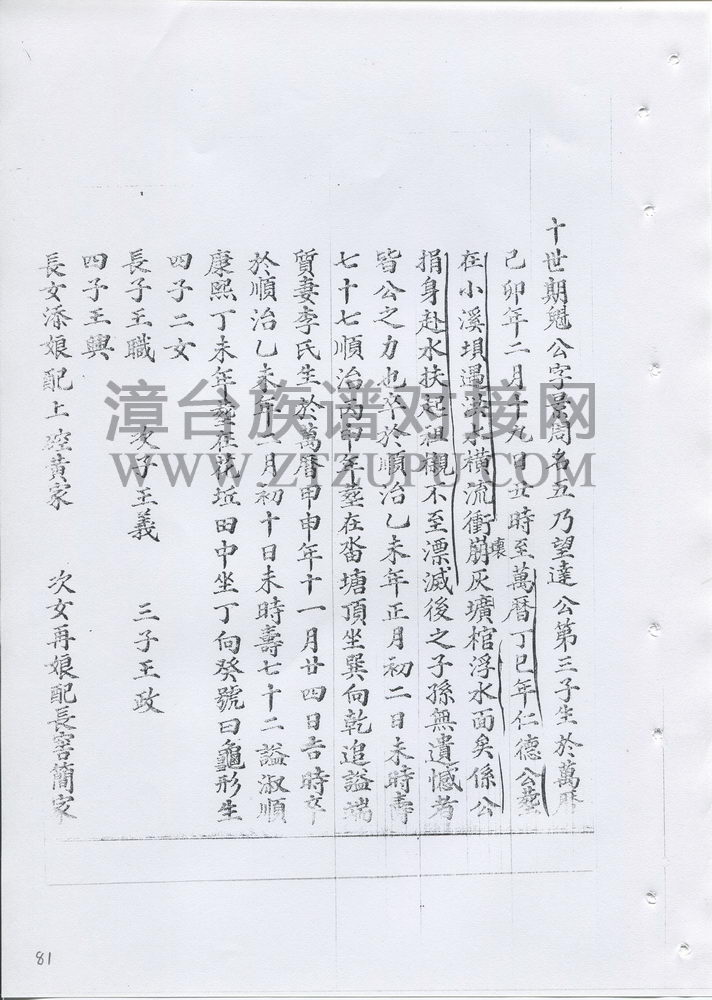 十世期魁公字景周名五乃望達公第三子生於萬曆
己卯年二月十九日丑時至萬曆丁巳年仁德公塟
在小溪埧遇洪水橫流衝崩壞灰壙棺浮水面矣係公
捐身赴水扶起祖櫬不至漂滅後之子孫無遺憾者
皆公之力也卒於順治乙未年正月初二日未時壽
七十七順治丙申年塟在畓塘頂坐巽向乾追謚端
質妻李氏生於萬曆甲申年十一月廿四日吉時卒
於順治乙未年 月初十日未時壽七十二謚淑順
康熙丁未年塟在花坵田中坐丁向癸號曰龜形生
四子二女
長子王職 次子王義 三子王政
四子王興
長女添娘配上 黃家 次女再娘配長窖簡家
漳台族谱对接网
WWW.ZTZUPU.COM
81